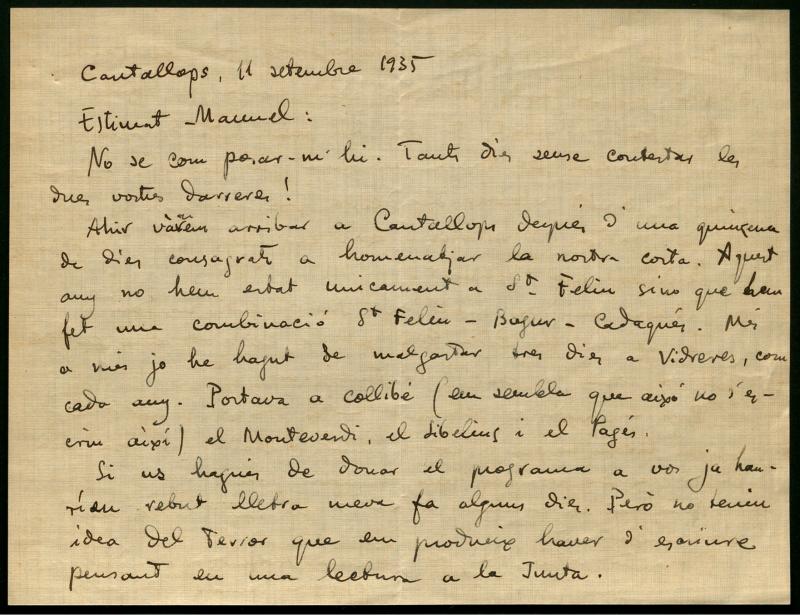 Cantallops, 11 setembre 1935
Estimat Manuel:
No se com posar-m'hi. Tants dies sense contestar les
dues vostres darreres!
Ahir vàrem arribar a Cantallops després d'una quinzena
de dies consagrats a homenatjar la nostra costa. Aquest
any no hem estat unicament a St. Feliu sino que hem
fet una combinació St Feliu - Bagur - Cadaqués. Més
a més jo he hagut de malgastar tres dies a Vidreres, com
cada any. Portava a collibé (em sembla que això no s'es-
criu així) el Monteverdi, el Sibelius i el Pagés.
Si us hagués de donar el programa a vos ja hau-
rieu rebut lletra meva fa alguns dies. Però no teniu
idea del terror que em produeix haver d'escriure
pensant en una lectura a la Junta.